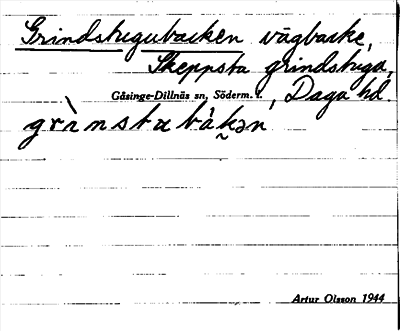 Grindstugubacken vägbacke,
Skeppsta grindstuga,
Gåsinge-Dillnäs sn, Söderm. l., Daga hd.
grìnstabàk̬ən
Artur Olsson 1944